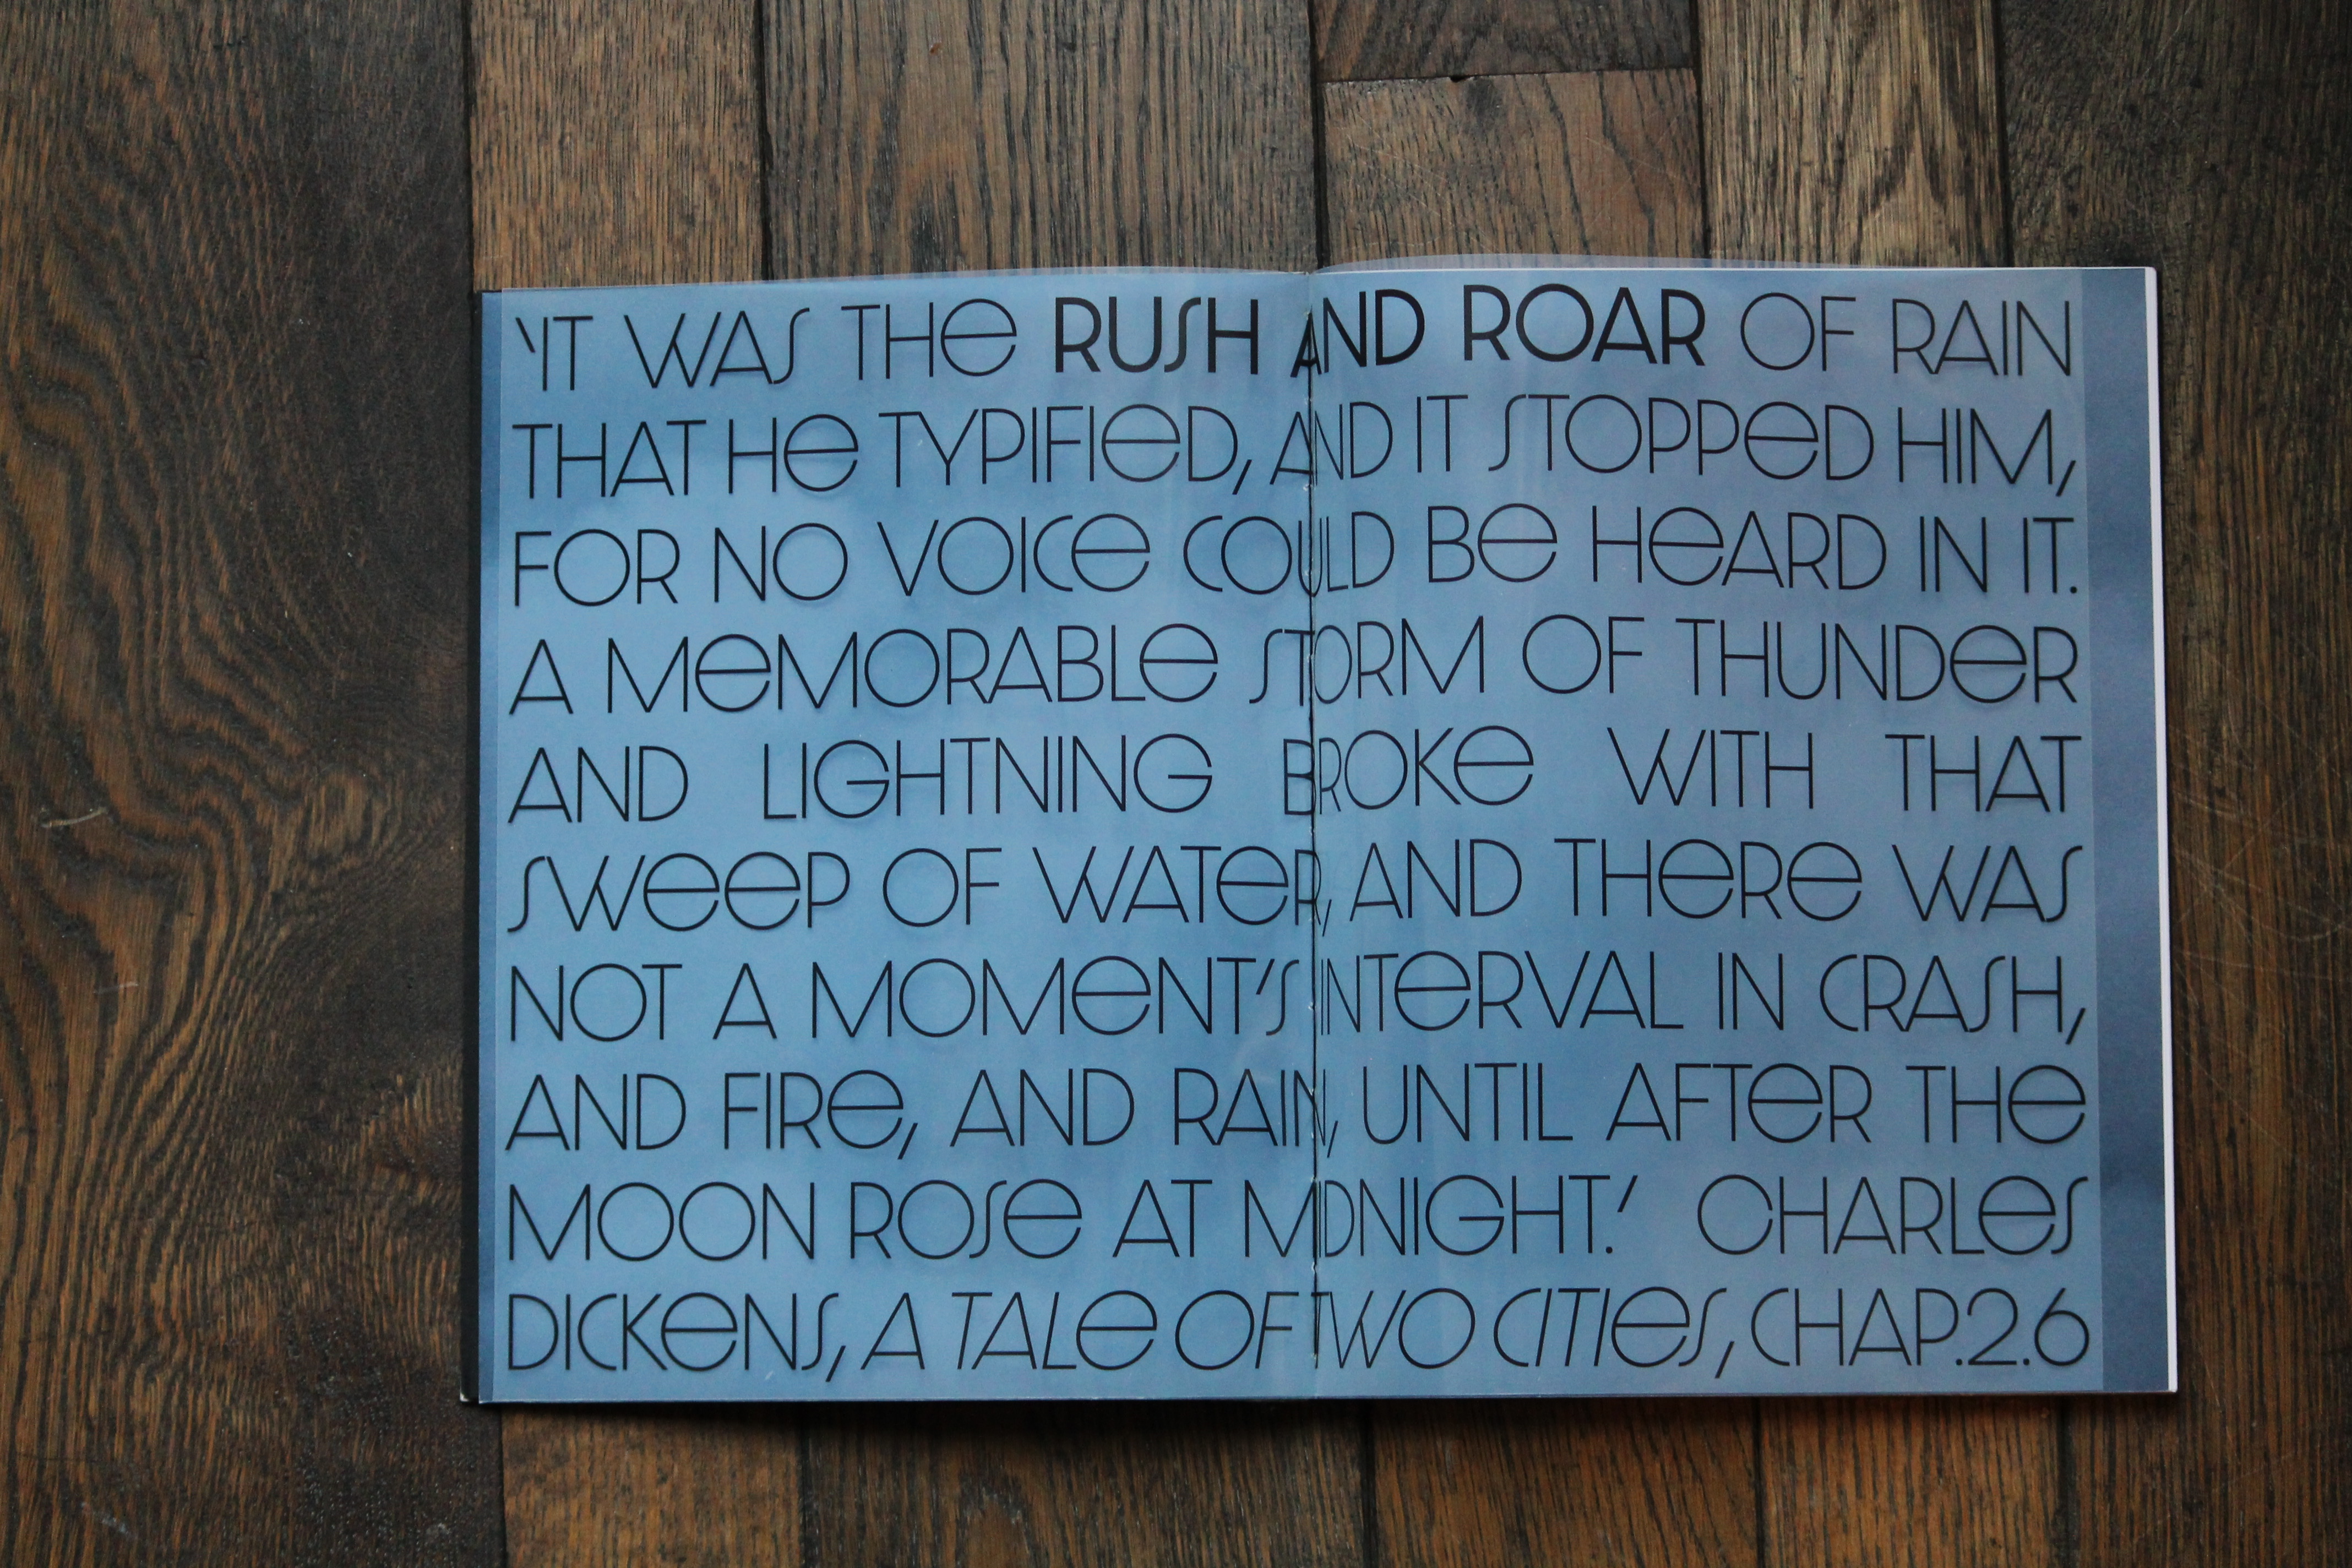 'IT WAS THE RUSH AND ROAR OF RAIN
THAT HE TYPIFIED, AND IT STOPPED HIM,
FOR NO VOICE COULD BE HEARD IN IT.
A MEMORABLE STORM OF THUNDER
AND LIGHTNING BROKE WITH THAT
SWEEP OF WATER, AND THERE WAS
NOT A MOMENT'S INTERVAL IN CRASH,
AND FIRE, AND RAIN, UNTIL AFTER THE
MOON ROSE AT MIDNIGHT.' CHARLES
DICKENS, A TALE OF TWO CITIES, CHAP.2.6